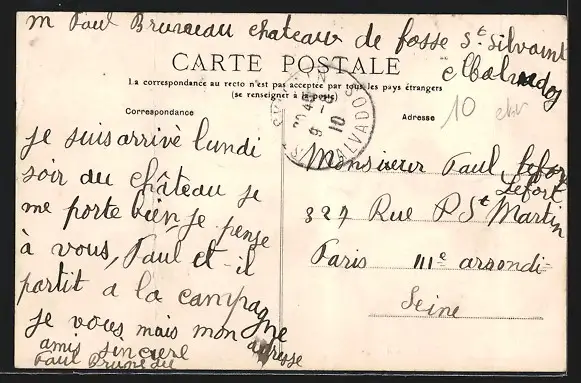 m Paul Bruneau chateau de fosse St. Silvaint
CARTE POSTALE
Calvados
La correspondance au recto n'est pas acceptée par tous les pays étrangers
(se renseigner à la poste)
Correspondance
Adresse
10
CALVADOS
je suis arrivè lundi
soir au château je
me porte bien, je pense
à vous, Paul et-il
partit a la campagne
je vous mais mon adresse
amis sincere
Paul Bruneau
Monsieur Paul Lefort
Lefort
327 Rue St Martin
Paris IIIe arrondi=
Seine